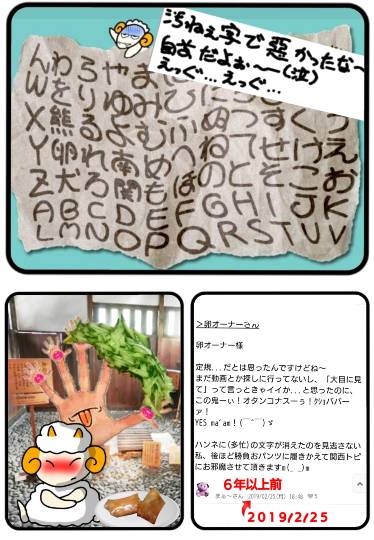 汚ねえ字で悪かったな〜
自首だよぉ〜ー(泣)
えっぐ…えっぐ…
んわらやま
Wをりゆみひ
X熊るよむふぬつすくう
Y卵れ南めへねてせけえ
Z犬ろ関もほのとそこお
ABCDEFGHIJK
LMNOPQRSTUV
＞卵オーナーさん
卵オーナー様
定規...だとは思ったんですけどね〜
まだ動画とか探しに行ってないし、「大目に見
て」って言っときゃイイか...と思ったのに、
この鬼ーぃ！オタンコナスーぅ！ｸｿｯババー
ァ！
YES ma'am！(￣^￣)ゞ
ハンネに(多忙)の文字が消えたのを見逃さない
私、後ほど勝負おパンツに履きかえて関西トピ
にお邪魔させて頂きますm(_ _)m
６年以上前
まぁ〜さん 2019/02/25(月) 18:48 ♥5
２０１９/２/２５